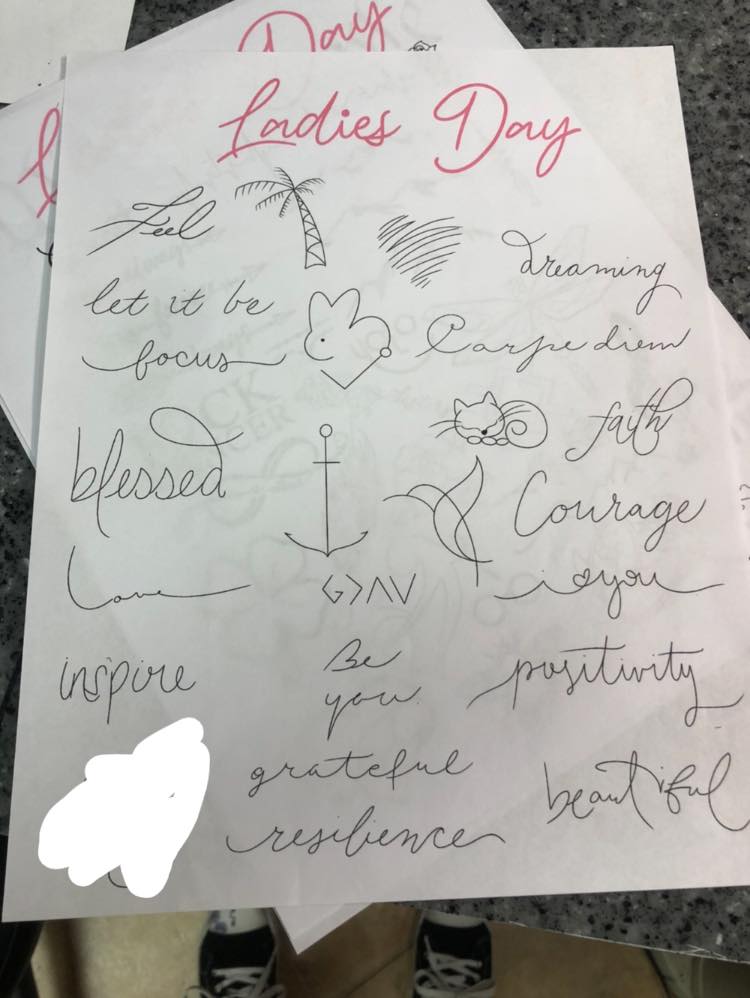 Day
Ladies Day
Feel
dreaming
let it be
focus
Carpe diem
faith
blessed
Courage
Love
G>ΛV
i you
inspire
Be
you
positivity
grateful
beautiful
resilience